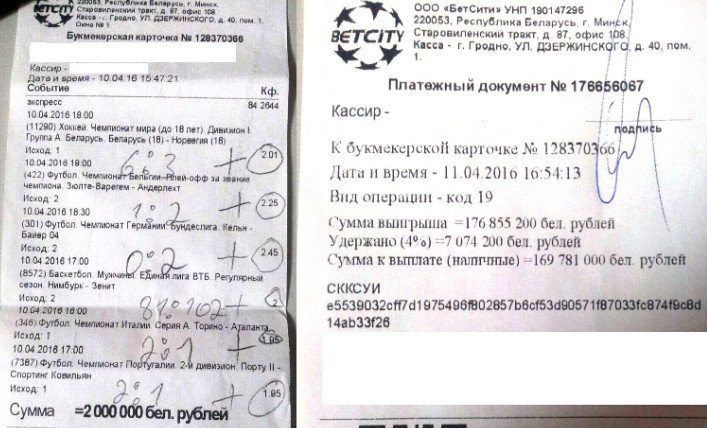 BETCITY
220053, Республика Беларусь, г. Минск,
Старовиленский тракт, д. 87, офис 108.
Касса - г. Гродно, УЛ. ДЗЕРЖИНСКОГО, д. 40, пом. 1.
Окно № 1
Букмекерская карточка № 128370366
Кассир -
Дата и время - 10.04.16 15:47:21
Событие Кф.
экспресс 84.2644
10.04.2016 18:00
(11290) Хоккей. Чемпионат мира (до 18 лет). Дивизион I.
Группа А. Беларусь. Беларусь (18) - Норвегия (18)
Исход: 1 6:3 + 2.01
10.04.2016 19:00
(422) Футбол. Чемпионат Бельгии. Плей-офф за звание
чемпиона. Зюлте-Варегем - Андерлехт
Исход: 2 1:2 + 2.25
10.04.2016 18:30
(301) Футбол. Чемпионат Германии. Бундеслига. Кельн -
Байер 04
Исход: 2 0:2 + 2.45
10.04.2016 17:00
(8572) Баскетбол. Мужчины. Единая лига ВТБ. Регулярный
сезон. Нимбурк - Зенит
Исход: 2 81:102 + 2
10.04.2016 16:00
(346) Футбол. Чемпионат Италии. Серия А. Торино - Аталанта
Исход: 1 2:1 + 1.95
10.04.2016 17:00
(7387) Футбол. Чемпионат Португалии. 2-й дивизион. Порту II -
Спортинг Ковильян
Исход: 1 2:1 + 1.95
Сумма =2 000 000 бел. рублей
BETCITY
ООО «БетСити» УНП 190147296
220053, Республика Беларусь, г. Минск,
Старовиленский тракт, д. 87, офис 108.
Касса - г. Гродно, УЛ. ДЗЕРЖИНСКОГО, д. 40, пом.
1.
Платежный документ № 176656067
Кассир -
подпись
К букмекерской карточке № 128370366
Дата и время - 11.04.2016 16:54:13
Вид операции - код 19
Сумма выигрыша =176 855 200 бел. рублей
Удержано (4%) =7 074 200 бел. рублей
Сумма к выплате (наличные) =169 781 000 бел. рублей
СККСУИ
e5539032cff7d1975496f802857b6cf53d90571f87033fc874f9c8d
14ab33f26